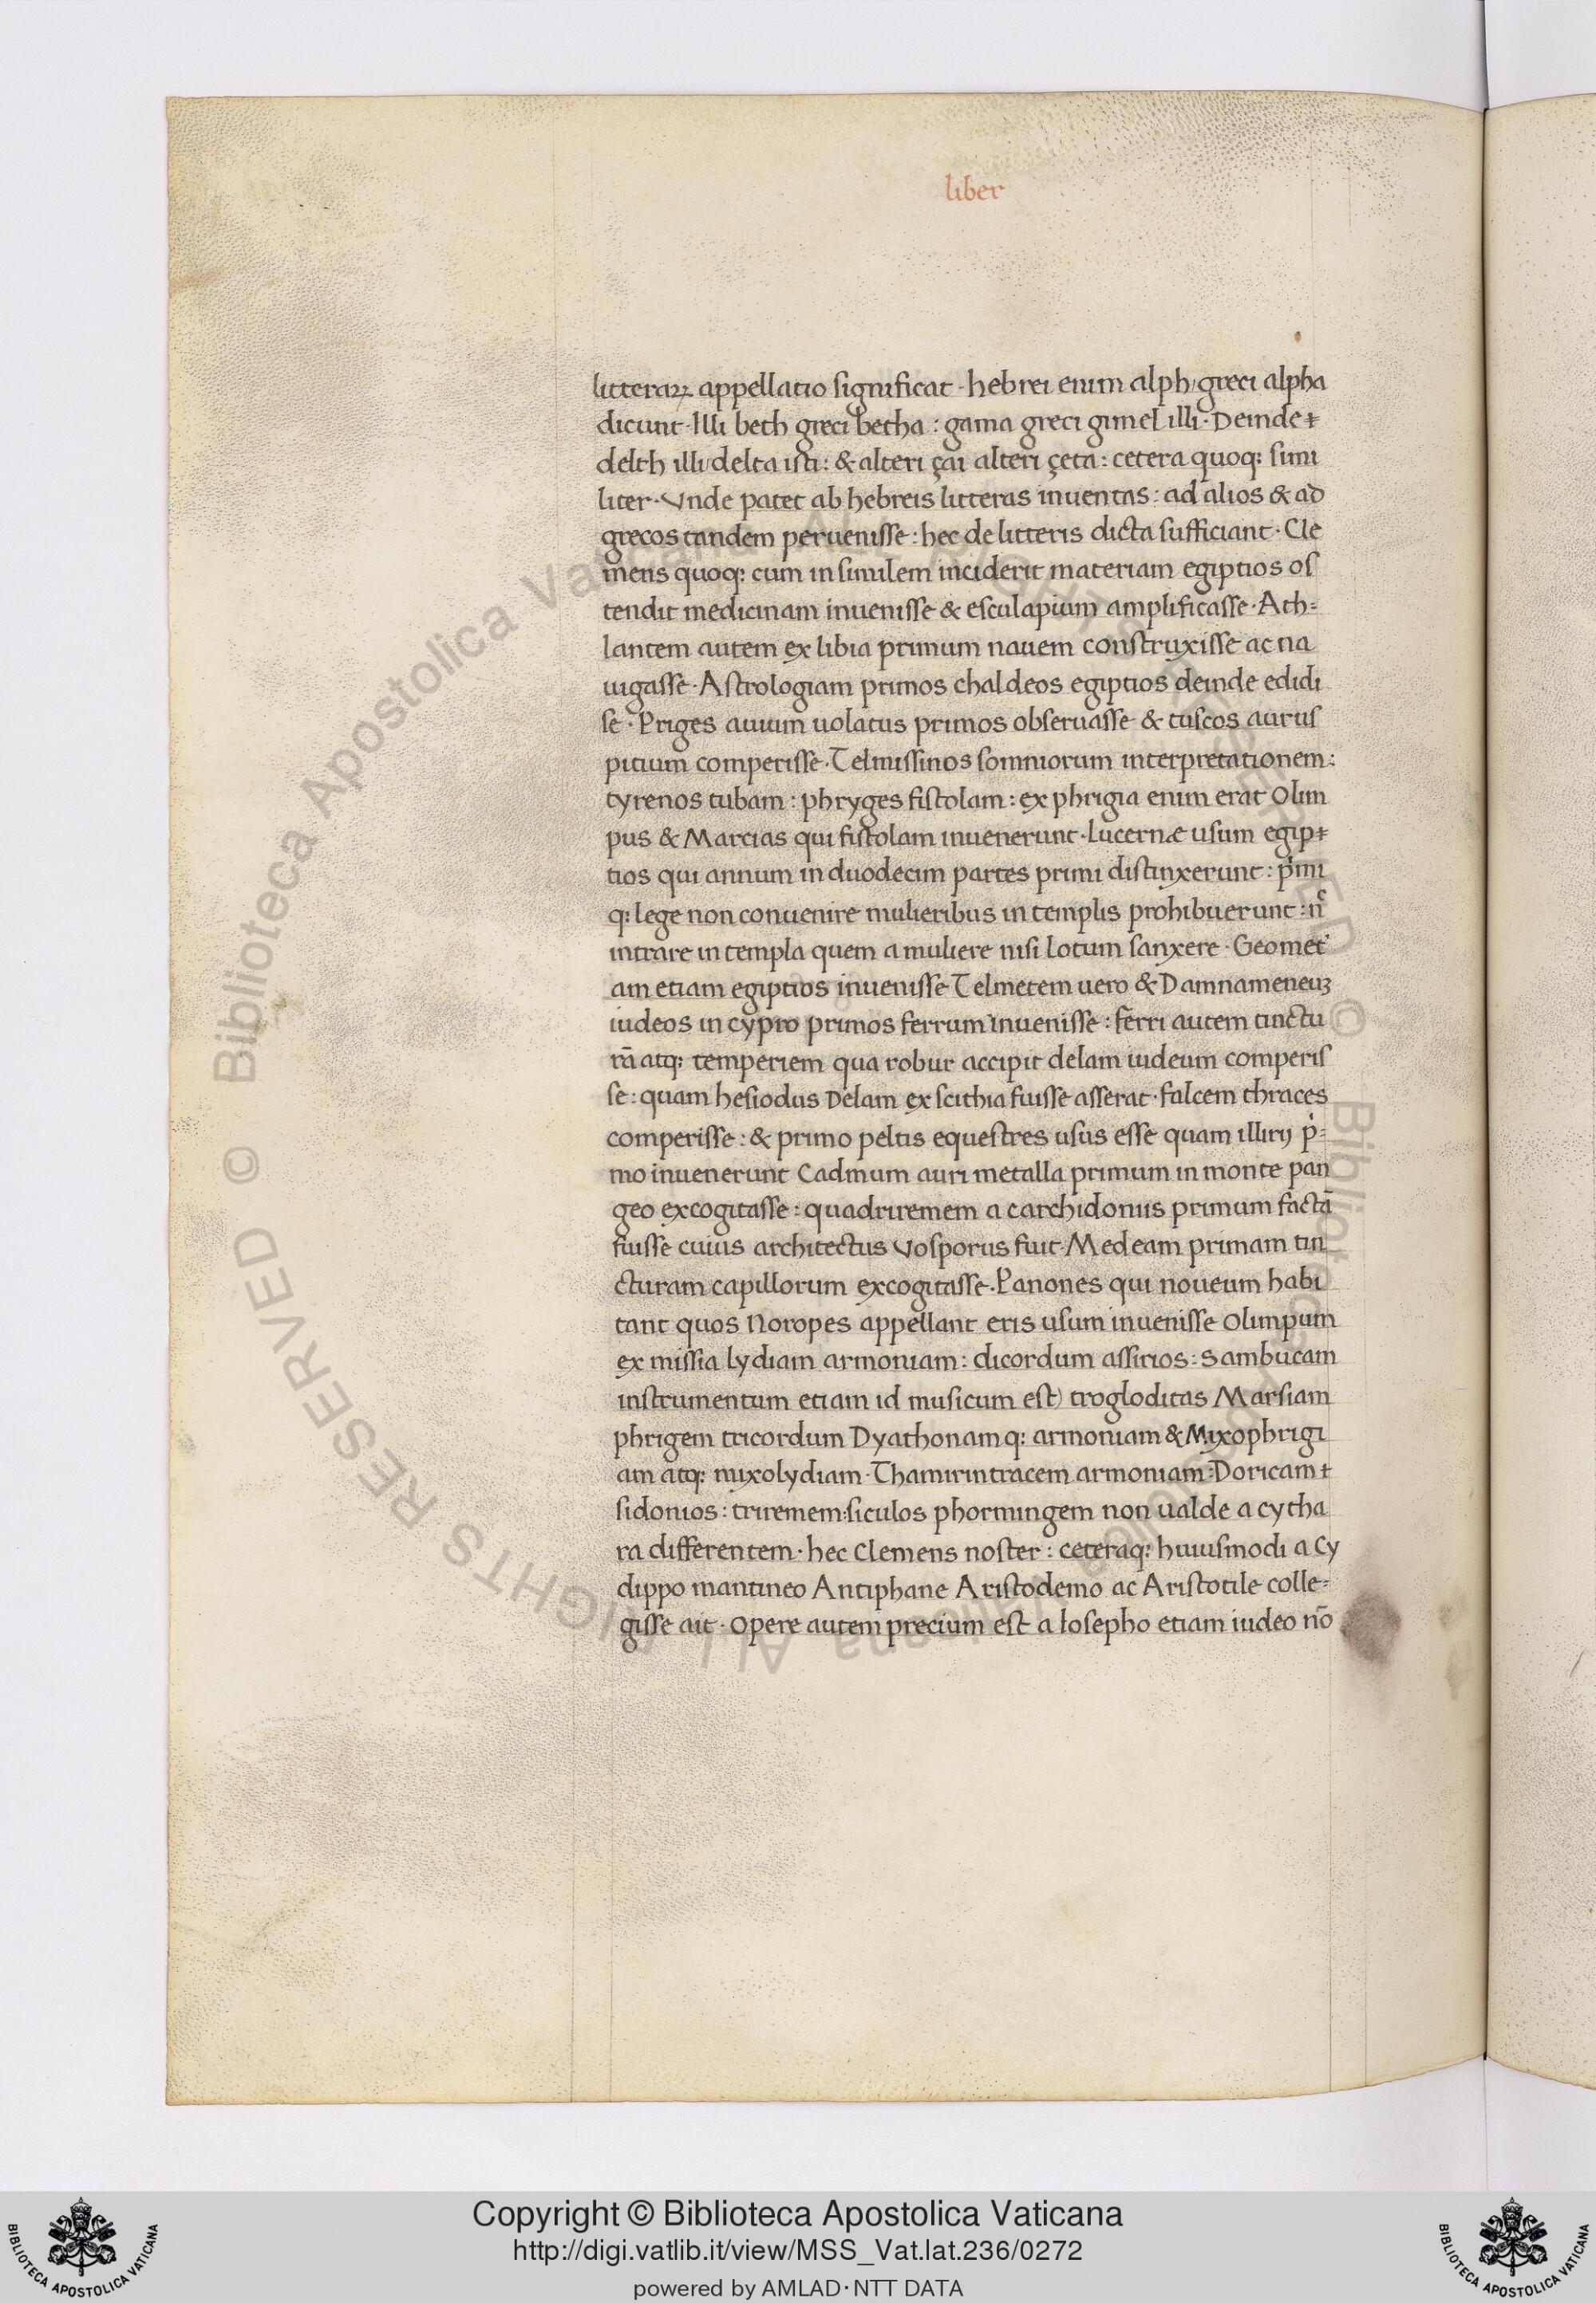 liber
litteraꝝ appellatio significat · hebrei enim alph/ greci alpha
dicunt · Illi beth greci betha : gama greci gimel illi · Deinde
delth illi/ delta isti : & alteri çai alteri çeta : cetera quoq: simi
liter · Vnde patet ab hebreis litteras inuentas : ad alios & ad
grecos tandem peruenisse : hec de litteris dicta sufficiant · Cle
mens quoq: cum in similem inciderit materiam egiptios os
tendit medicinam inuenisse & esculapium amplificasse · Ath=
lantem autem ex libia primum nauem construxisse ac na
uigasse · Astrologiam primos chaldeos egiptios deinde edidi
se · Priges auium uolatus primos obseruasse & tuscos aurus
pitium comperisse · Telmissinos somniorum interpretationem :
tyrenos tubam : phryges fistolam : ex phrigia enim erat Olim
pus & Marcias qui fistolam inuenerunt · lucernæ usum egip
tios qui annum in duodecim partes primi distinxerunt : p̍mi
q: lege non conuenire mulieribus in templis prohibuerunt : nͨ
intrare in templa quem a muliere nisi lotum sanxere · Geomet̍
am etiam egiptios inuenisse Telmetem uero & Damnameneuʒ
iudeos in cypro primos ferrum inuenisse : ferri autem tinctu
rā atq: temperiem qua robur accipit delam iudeum comperis
se : quam hesiodus Delam ex scithia fuisse asserat · falcem thraces
comperisse : & primo peltis equestres usus esse quam illirij p̍=
mo inuenerunt Cadmum auri metalla primum in monte pan
geo excogitasse : quadriremem a carchidoniis primum factā
fuisse cuius architectus Vosporus fuit · Medeam primam tin
cturam capillorum excogitasse · Panones qui noueum habi
tant quos Noropes appellant eris usum inuenisse Olimpum
ex missia lydiam armoniam : dicordum assirios : Sambucam
instrumentum etiam id musicum est) trogloditas Marsiam
phrigem tricordum Dyathonamq: armoniam & Mixophrigi
am atq: mixolydiam · Thamirin tracem armoniam : Doricam
sidonios : triremem : siculos phormingem non ualde a cytha
ra differentem · hec Clemens noster : ceteraq: huiusmodi a Cy
dippo mantineo Antiphane Aristodemo ac Aristotile colle=
gisse ait · Opere autem precium est a Iosepho etiam iudeo nō
© Biblioteca Apostolica Vaticana ALL RIGHTS RESERVED © Biblioteca Apostolica Vaticana ALL RIGHTS RESERVED
Copyright © Biblioteca Apostolica Vaticana
http://digi.vatlib.it/view/MSS_Vat.lat.236/0272
powered by AMLAD·NTT DATA
BIBLIOTECA APOSTOLICA VATICANA
BIBLIOTECA APOSTOLICA VATICANA